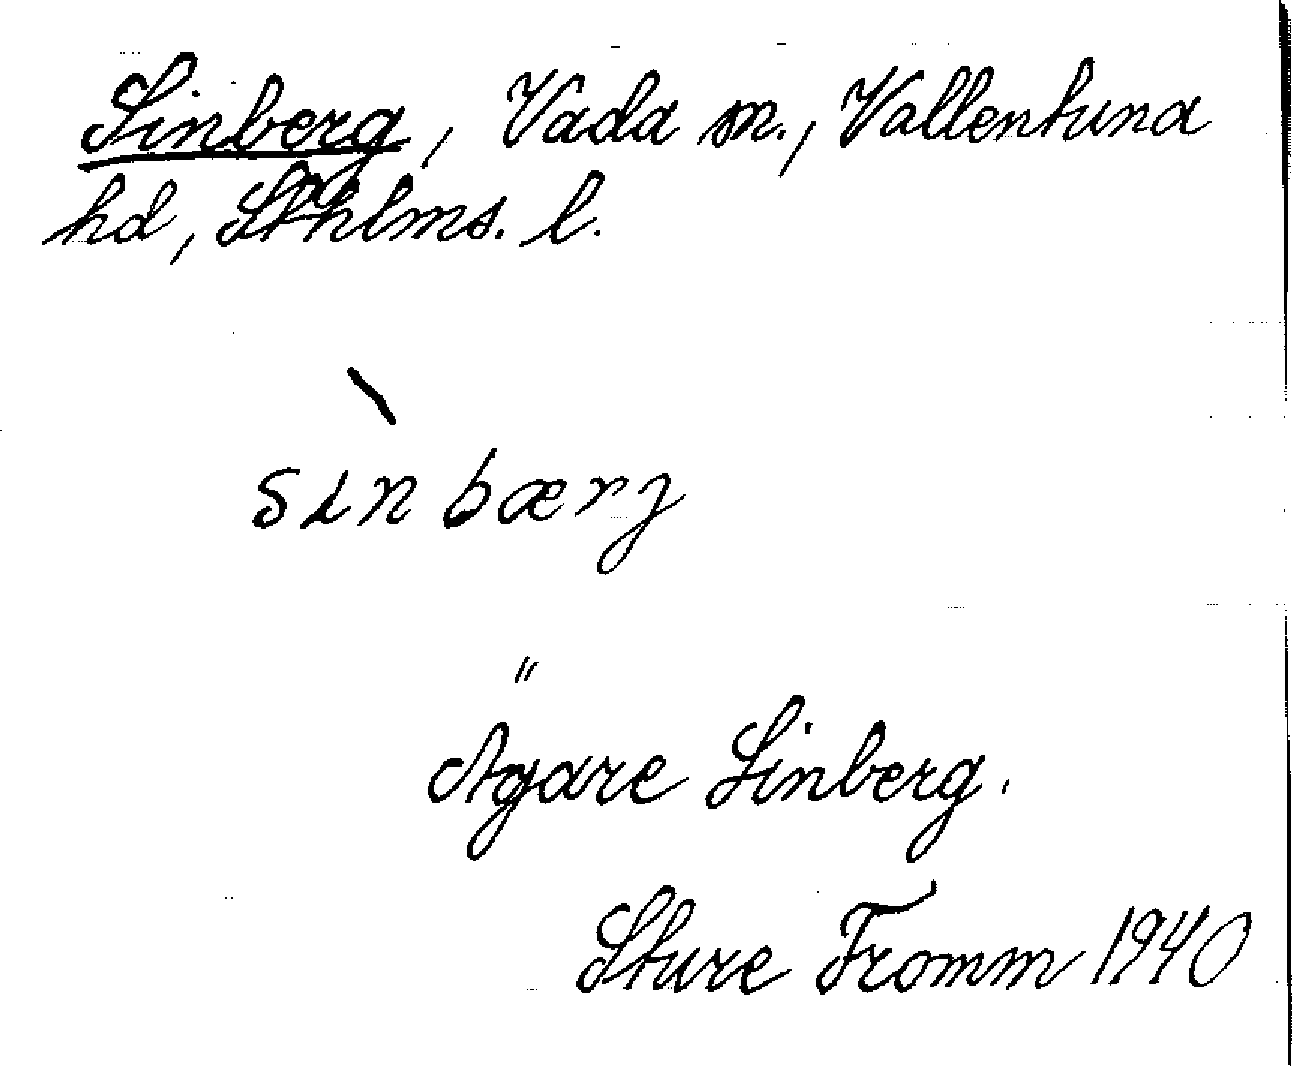 Sinberg, Vada sn., Vallentuna
hd, Sthlms. l.
sɪ̀nbærj
Ägare Sinberg.
Sture Fromm 1940